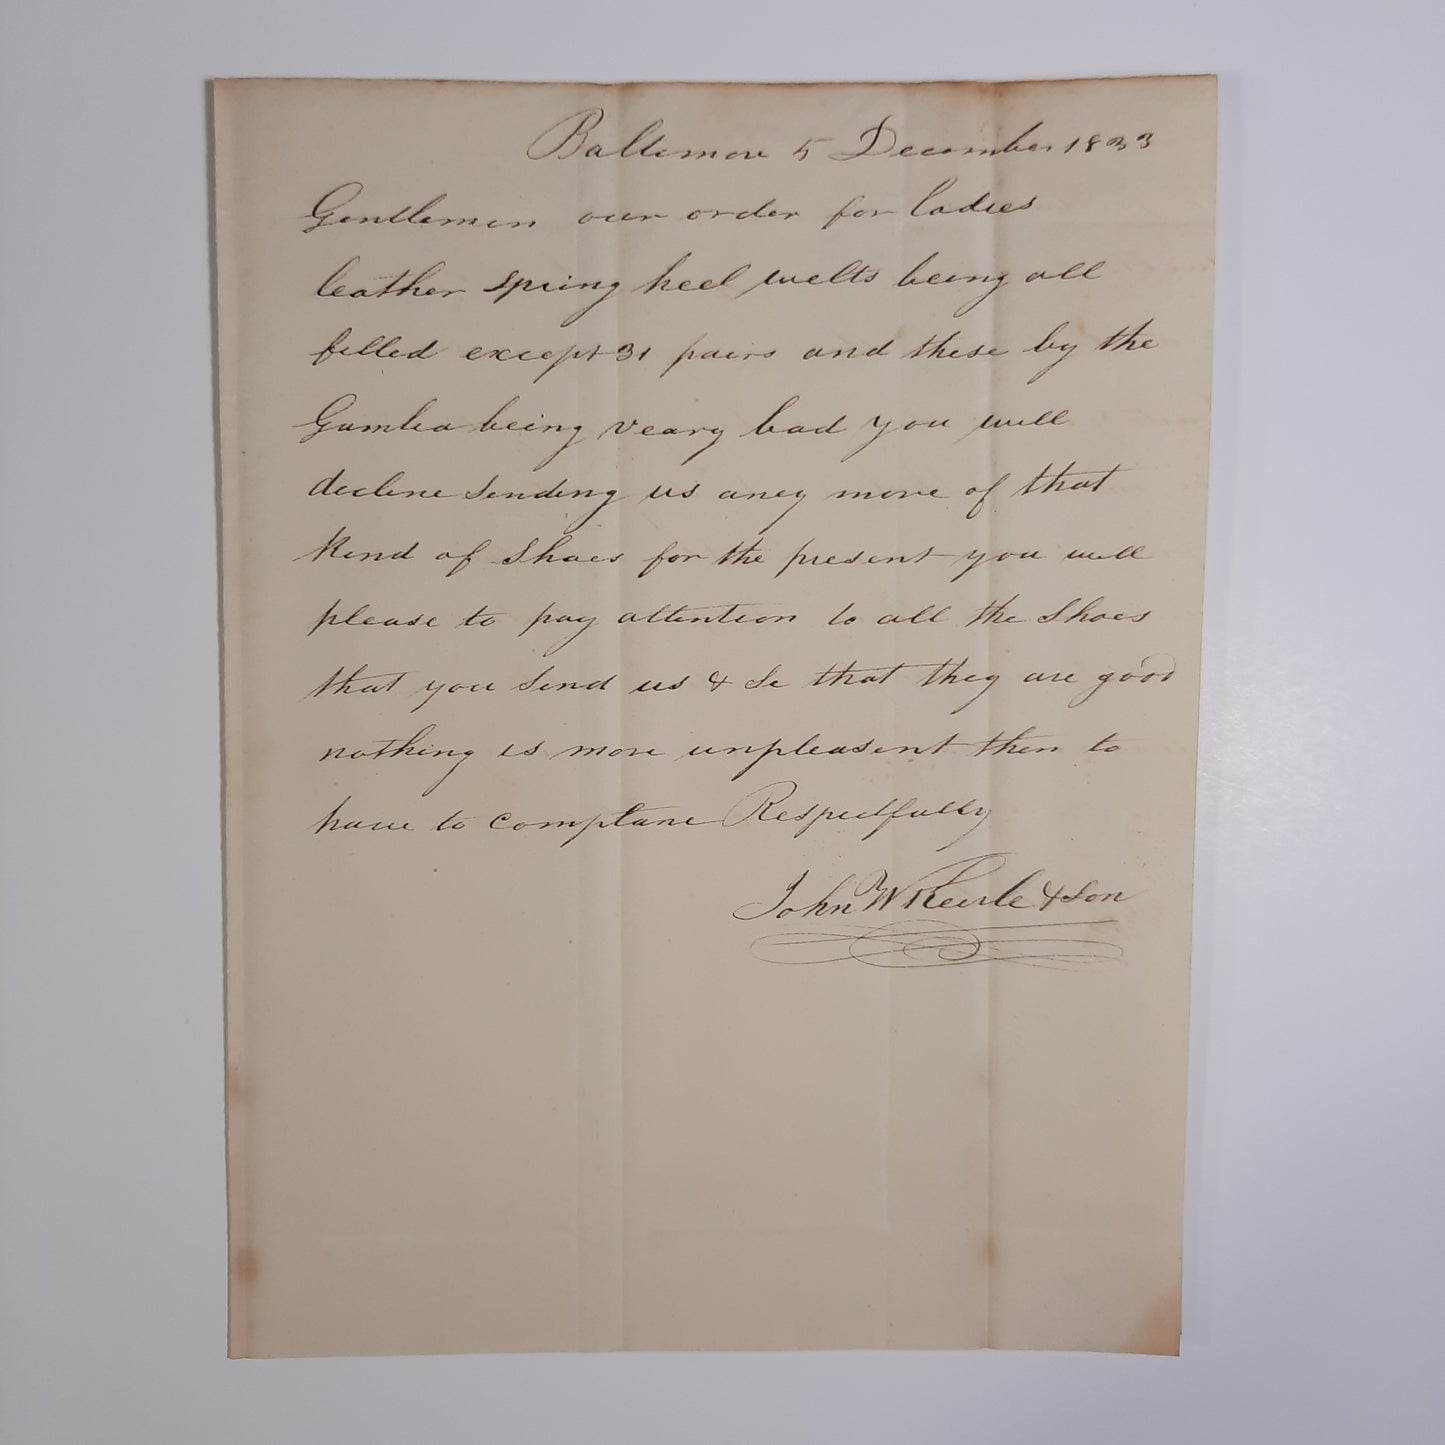 Baltimore 5 December 1833
Gentlemen our order for Ladies
leather spring heel welts being all
filled except 31 pairs and these by the
being veary bad you will
decline sending us aney more of that
kind of Shoes for the present you will
please to pay attention to all the Shoes
that you send us & Se that they are good
nothing is more unpleasent then to
have to complane Respectfully
John W Keirle & Son